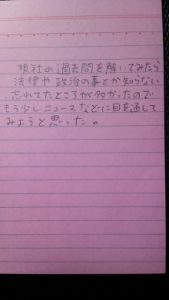 現社の過去問を解いてみたら
法律や政治の事とか知らない
忘れてたところが多かったので
もう少しニュースなどに目を通して
みようと思った。